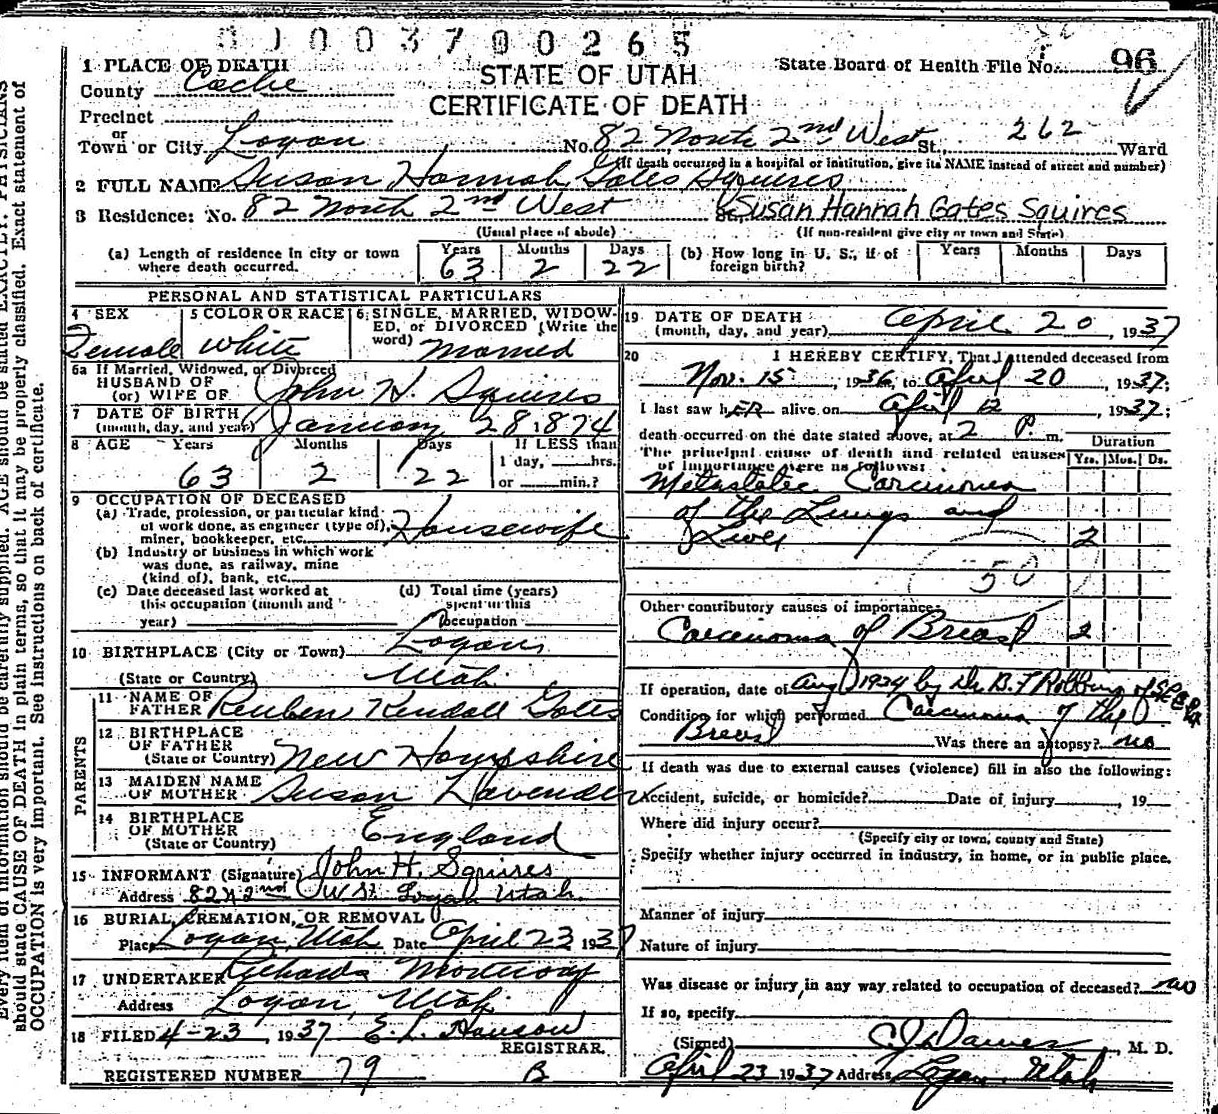 003700265
1 PLACE OF DEATH
STATE OF UTAH
State Board of Health File No. 96
County Cache
CERTIFICATE OF DEATH
Precinct
or
Town or City Logan No. 82 North 2nd West St. 262 Ward
(If death occurred in a hospital or institution, give its NAME instead of street and number)
2 FULL NAME Susan Hannah Gates Squires
3 Residence: No. 82 North 2nd West St. Susan Hannah Gates Squires
(Usual place of abode) (If non-resident give city or town and State)
(a) Length of residence in city or town where death occurred. Years 63 Months 2 Days 22
(b) How long in U. S., if of foreign birth? Years Months Days
PERSONAL AND STATISTICAL PARTICULARS
4 SEX Female
5 COLOR OR RACE white
6 SINGLE, MARRIED, WIDOWED, or DIVORCED (Write the word) Married
6a If Married, Widowed, or Divorced
HUSBAND OF
(or) WIFE OF John H. Squires
7 DATE OF BIRTH
(month, day, and year) January 28 1874
8 AGE Years Months Days If LESS than
63 2 22 1 day, hrs.
or min.?
9 OCCUPATION OF DECEASED
(a) Trade, profession, or particular kind
of work done, as engineer (type of),
miner, bookkeeper, etc. Housewife
(b) Industry or business in which work
was done, as railway, mine
(kind of), bank, etc.
(c) Date deceased last worked at
this occupation (month and
year)
(d) Total time (years)
spent in this
occupation
10 BIRTHPLACE (City or Town) Logan
(State or Country) Utah
PARENTS
11 NAME OF
FATHER Reuben Kendall Gates
12 BIRTHPLACE
OF FATHER
(State or Country) New Hampshire
13 MAIDEN NAME
OF MOTHER Susan Lavender
14 BIRTHPLACE
OF MOTHER
(State or Country) England
15 INFORMANT (Signature) John H. Squires
Address 82 N 2nd W St. Logan Utah.
16 BURIAL, CREMATION, OR REMOVAL
Place Logan, Utah Date April 23 1937
17 UNDERTAKER Richards Mortuary
Address Logan, Utah
18 FILED 4-23, 1937 E. L. Hanson
REGISTRAR.
REGISTERED NUMBER 79 B
19 DATE OF DEATH
(month, day, and year) April 20, 1937
20 I HEREBY CERTIFY, That I attended deceased from
Nov. 15, 1936, to April 20, 1937;
I last saw hER alive on April 12, 1937;
death occurred on the date stated above, at 2 P. m.
The principal cause of death and related causes
of importance were as follows:
Duration
Yrs. Mos. Ds.
Metastatic Carcinoma
of the Lungs and
Liver 2
50
Other contributory causes of importance:
Carcinoma of Breast 2
If operation, date of Aug 1934 by Dr. B. F. Robbins of
Condition for which performed Carcinoma of the
Breast Was there an autopsy? no
If death was due to external causes (violence) fill in also the following:
Accident, suicide, or homicide? Date of injury , 19
Where did injury occur?
(Specify city or town, county and State)
Specify whether injury occurred in industry, in home, or in public place.
Manner of injury
Nature of injury
Was disease or injury in any way related to occupation of deceased? no
If so, specify
(Signed) M. D.
April 23 1937 Address Logan, Utah
Every item of information should be carefully supplied. AGE should be stated EXACTLY. PHYSICIANS
should state CAUSE OF DEATH in plain terms, so that it may be properly classified. Exact statement of
OCCUPATION is very important. See instructions on back of certificate.